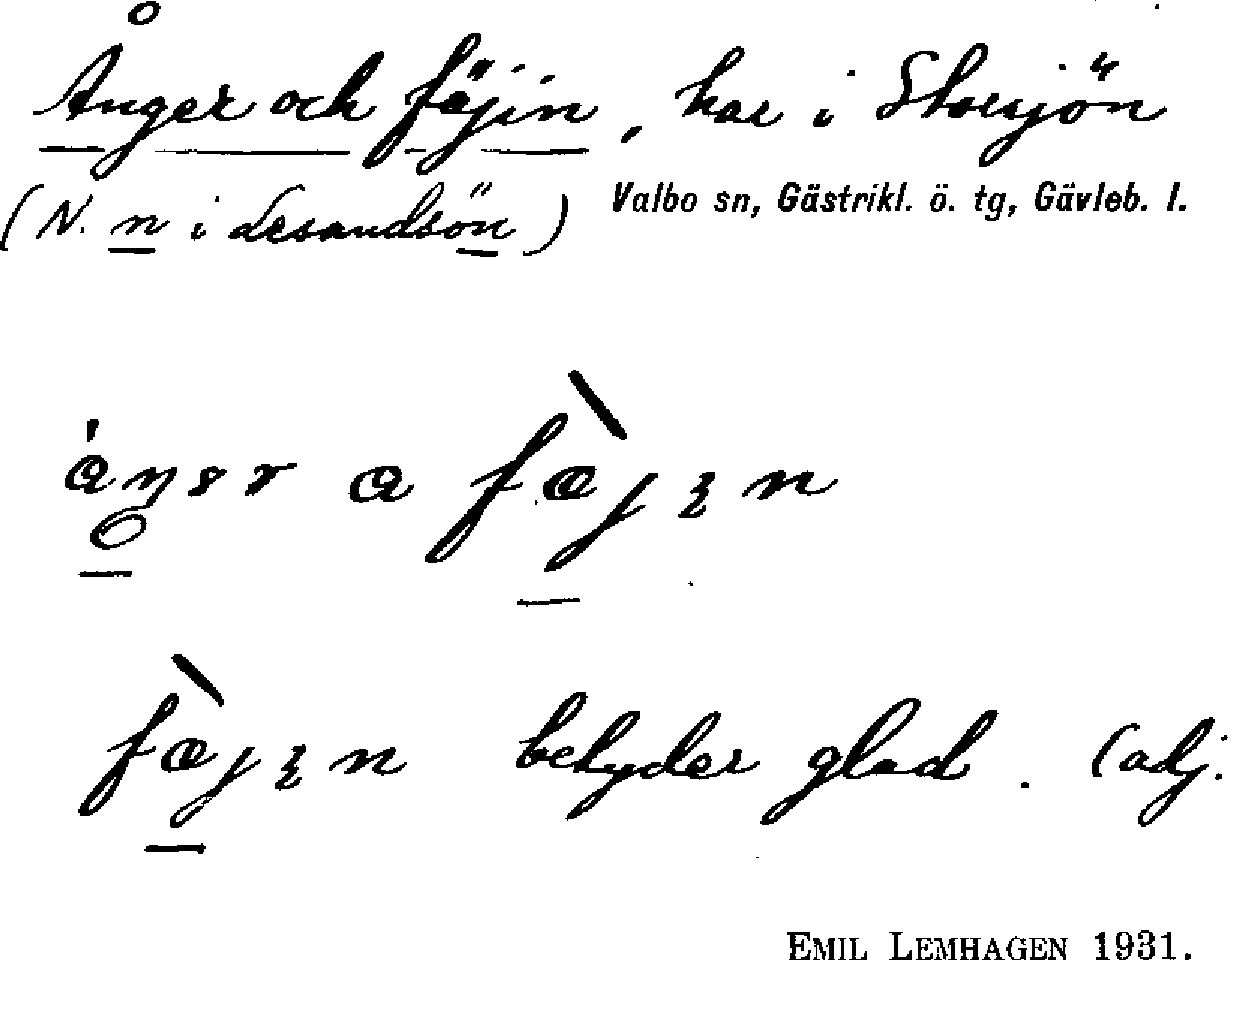 Ånger och fäjin, har i Storsjön
(N. n i Lesandsön) Valbo sn, Gästrikl. ö. tg, Gävleb. l.
a fæjın
fæjın betyder glad. (adj.
EMIL LEMHAGEN 1931.